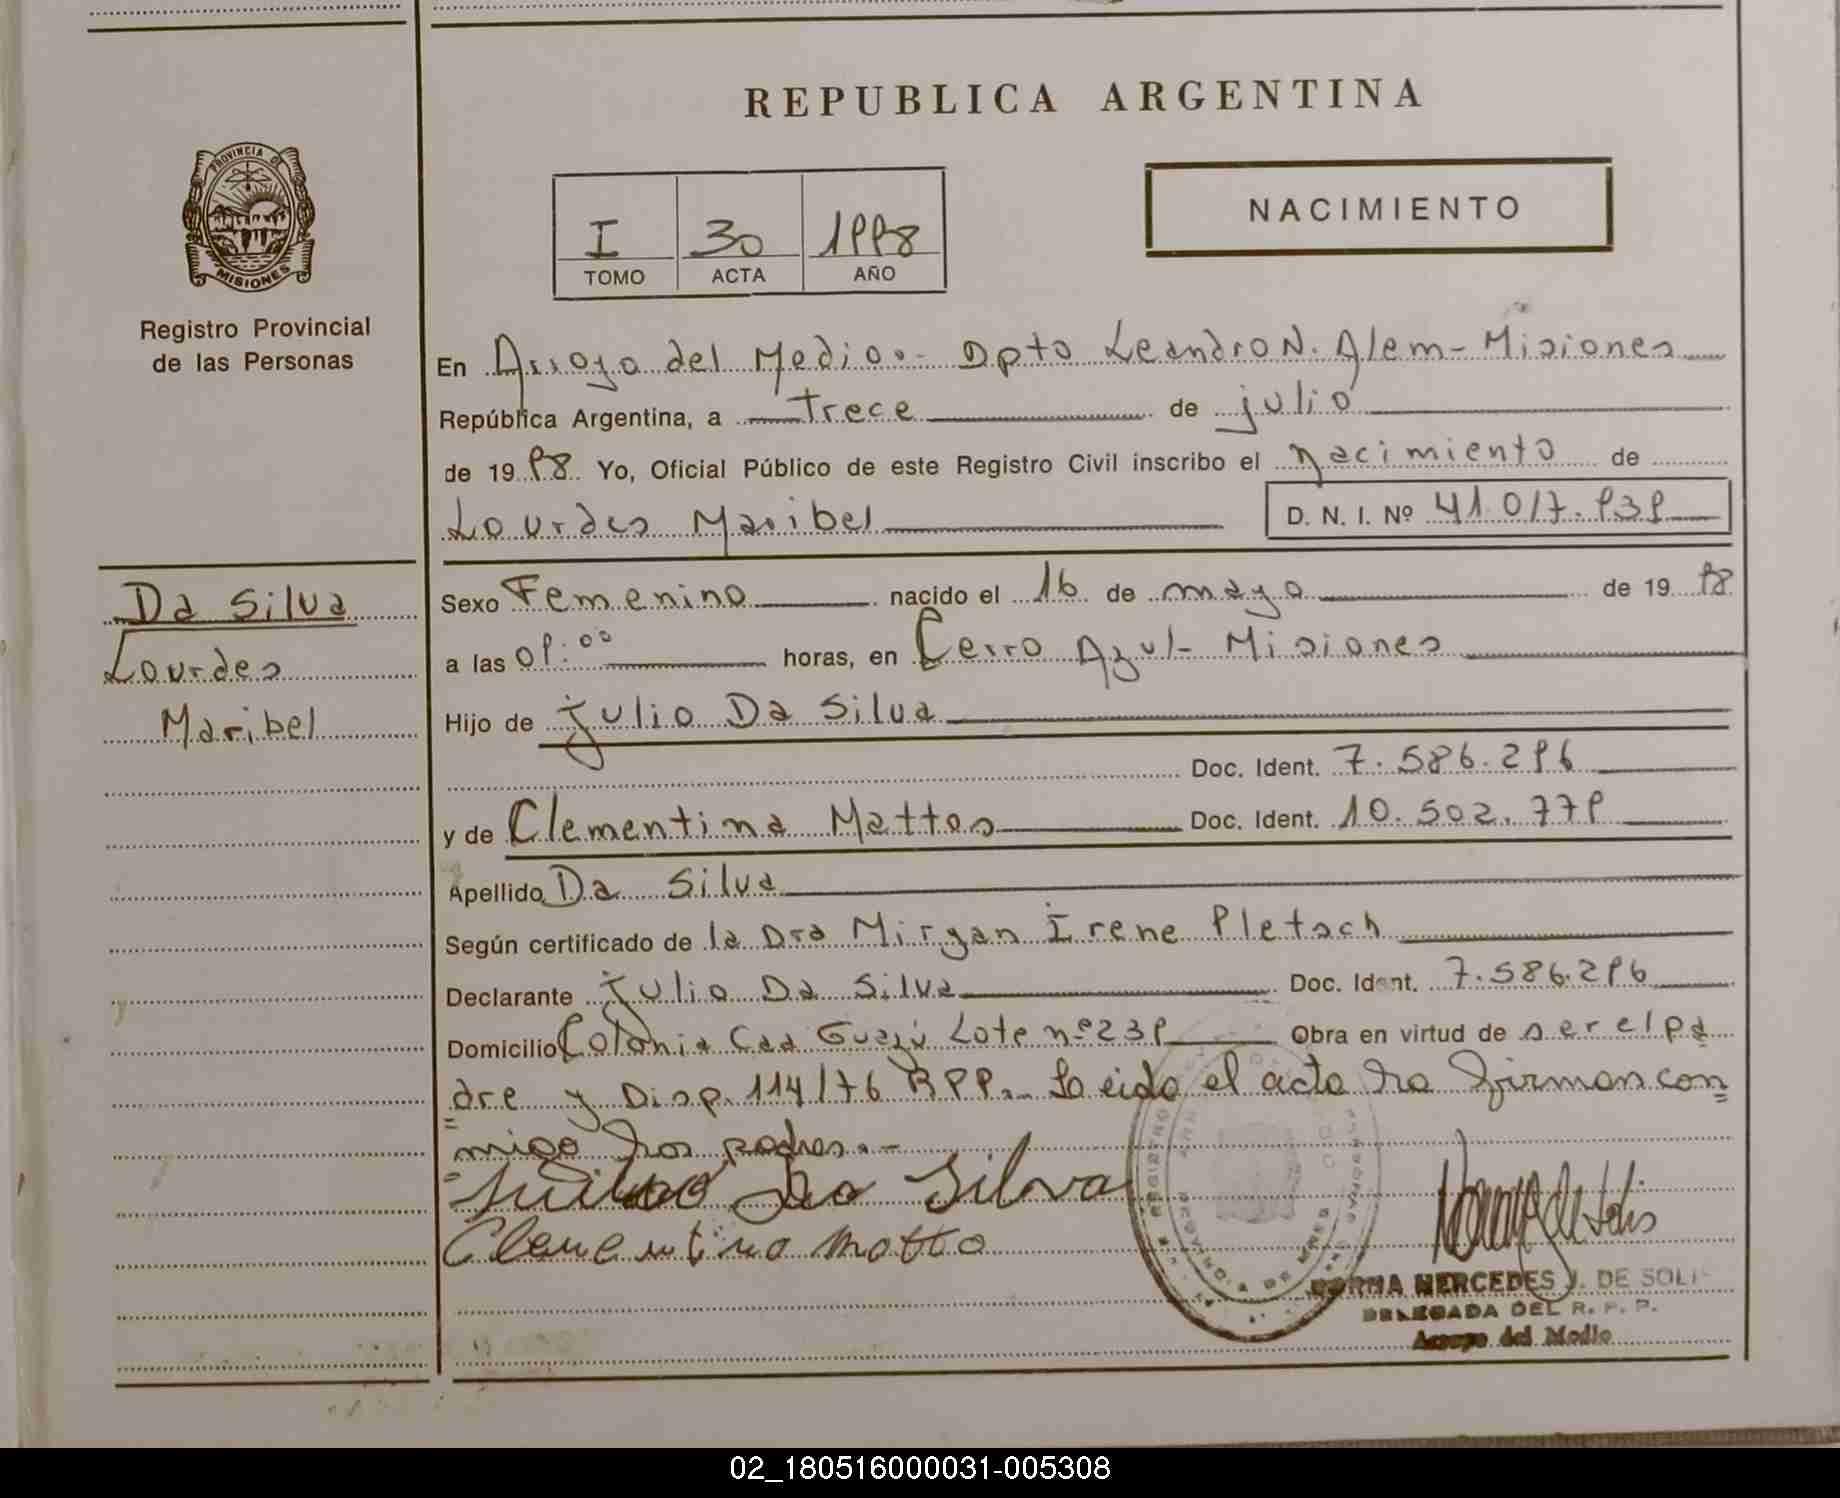 REPUBLICA ARGENTINA
PROVINCIA DE
MISIONES
Registro Provincial
de las Personas
I 30 1998
TOMO ACTA AÑO
NACIMIENTO
En Arroyo del Medio.- Dpto Leandro N. Alem - Misiones
República Argentina, a trece de julio
de 19 98 Yo, Oficial Público de este Registro Civil inscribo el nacimiento de
Lourdes Maribel D. N. I. Nº 41.017.939
Da Silva
Lourdes
Maribel
Sexo Femenino nacido el 16 de mayo de 19 98
a las 09:00 horas, en Cerro Azul - Misiones
Hijo de Julio Da Silva
Doc. Ident. 7.586.296
y de Clementina Mattos Doc. Ident. 10.502.779
Apellido Da Silva
Según certificado de la Dra Mirgan Irene Pletsch
Declarante Julio Da Silva Doc. Ident. 7.586.296
Domicilio Colonia Caa Guazú Lote nº 239 Obra en virtud de ser el pa
dre y Disp. 114/76 RPP.- Leida el acta la firman con
migo los padres.-
Da Silva
Clementina Motto
NORMA MERCEDES J. DE SOLIS
DELEGADA DEL R. P. P.
Arroyo del Medio
02_180516000031-005308